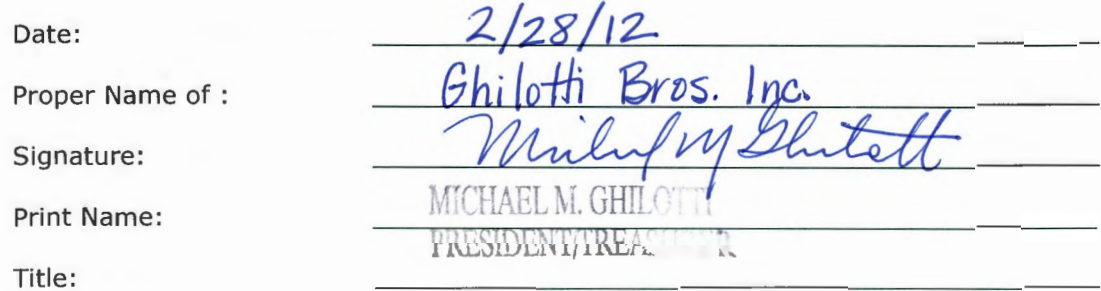 Date: 2/28/12
Proper Name of : Ghilotti Bros. Inc.
Signature: Michael M Ghilotti
Print Name: MICHAEL M. GHILOTTI
PRESIDENT/TREASURER
Title: